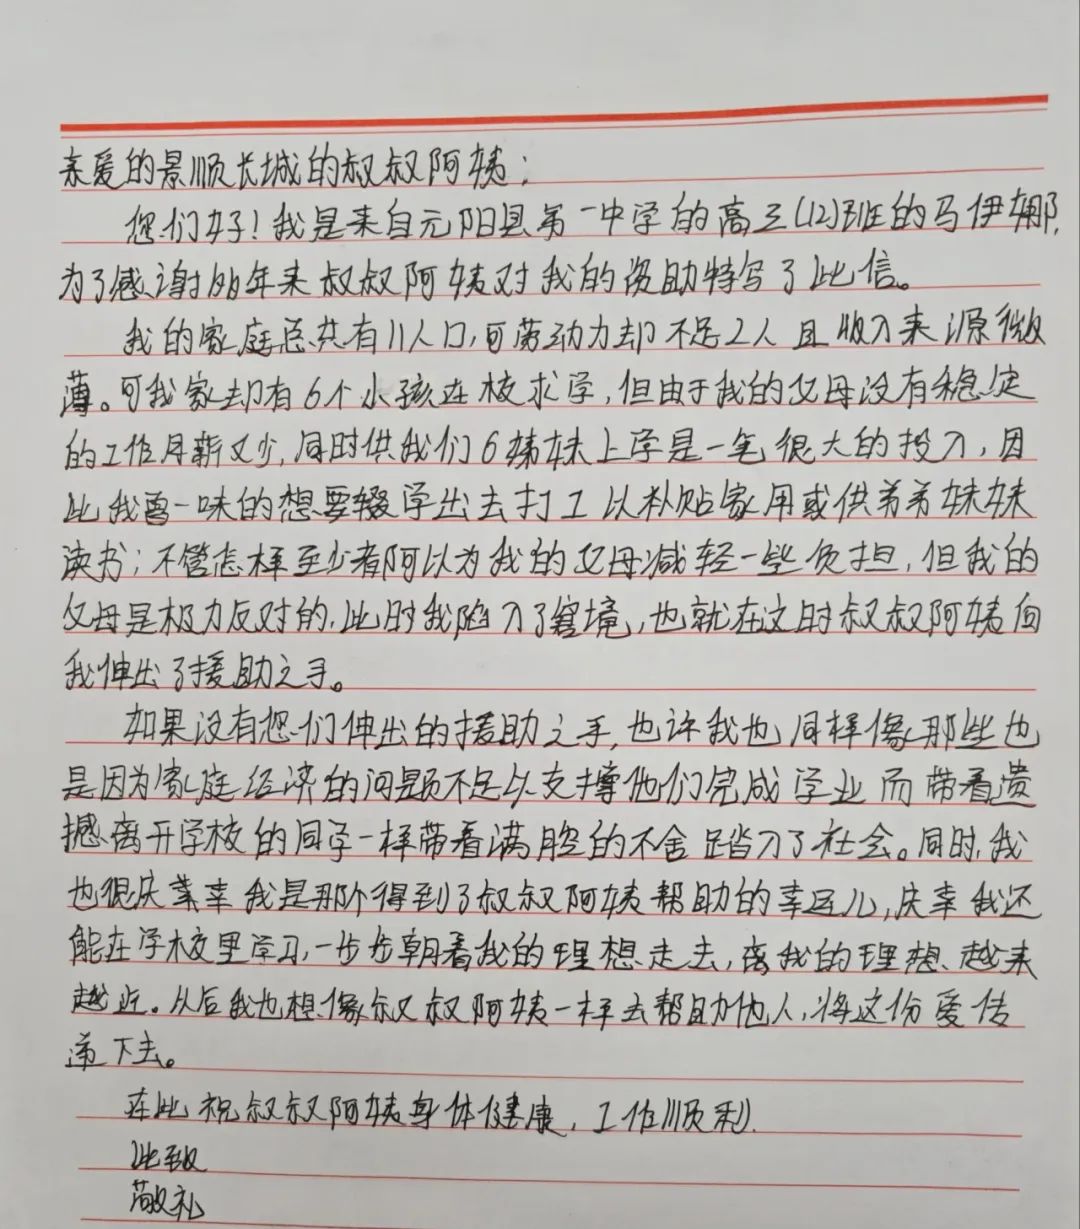 亲爱的景顺长城的叔叔阿姨：
您们好！我是来自元阳县第一中学的高三(12)班的马伊娜，
为了感谢近年来叔叔阿姨对我的资助特写了此信。
我的家庭总共有11人口，可劳动力却不足2人且收入来源微
薄。可我家却有6个小孩在校求学，但由于我的父母没有稳定
的工作月薪又少，同时供我们6姊妹上学是一笔很大的投入，因
此我曾一味的想要辍学出去打工以补贴家用或供弟弟妹妹
读书；不管怎样至少都可以为我的父母减轻一些负担，但我的
父母是极力反对的，此时我陷入了窘境，也就在这时叔叔阿姨向
我伸出了援助之手。
如果没有您们伸出的援助之手，也许我也同样像那些也
是因为家庭经济的问题不足以支撑他们完成学业而带着遗
憾离开学校的同学一样带着满腔的不舍踏入了社会。同时，我
也很庆幸我是那个得到了叔叔阿姨帮助的幸运儿，庆幸我还
能在学校里学习，一步步朝着我的理想走去，离我的理想越来
越近。从后我也想像叔叔阿姨一样去帮助他人，将这份爱传
递下去。
在此祝叔叔阿姨身体健康，工作顺利．
此致
敬礼